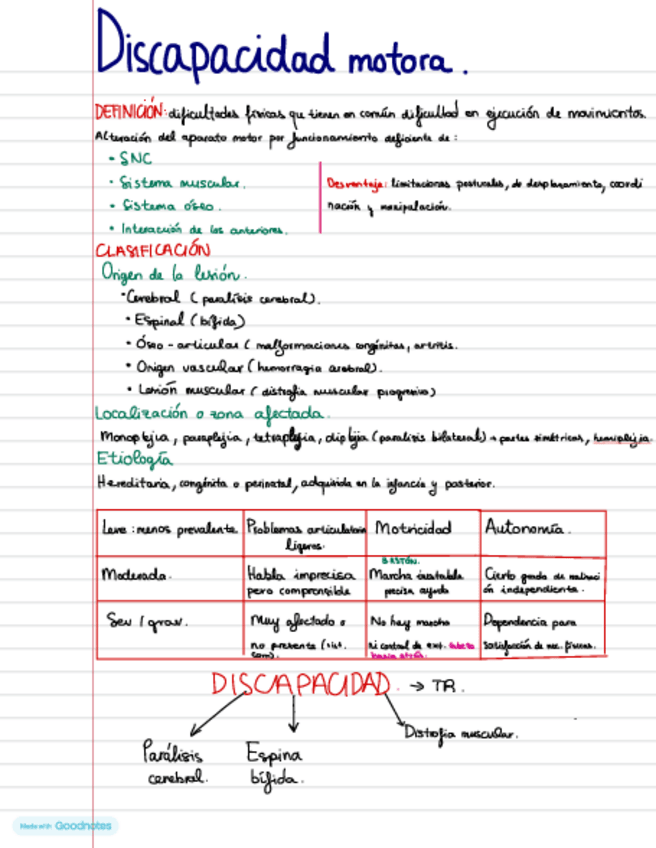 Discapacidad motora.
DEFINICIÓN: dificultades físicas que tienen en común dificultad en ejecución de movimientos.
Alteración del aparato motor por funcionamiento deficiente de:
• SNC
• Sistema muscular.
• Sistema óseo.
• Interacción de los anteriores.
Desventaja: limitaciones posturales, de desplazamiento, coordi
nación y manipulación.
CLASIFICACIÓN
Origen de la lesión.
• Cerebral (paralisis cerebral).
• Espinal (bífida)
• Óseo - articular (malformaciones congénitas, artritis.
• Origen vascular (hemorragia cerebral).
• Lesión muscular (distrofia muscular progresiva)
Localización o zona afectada.
Monoplejia, paraplejia, tetraplejia, diplejia (paralisis bilateral) → partes simétricas, hemiplejia.
Etiología
Hereditaria, congénita o perinatal, adquirida en la infancia y posterior.
Leve: menos prevalente. Problemas articulatorios Motricidad Autonomía.
ligeros.
BASTÓN.
Moderada. Habla imprecisa Marcha inestable Cierto grado de realizaci
pero comprensible precisa ayuda ón independiente.
Sev / grav. Muy afectado o No hay marcha Dependencia para
no presente (sist. Ni control de ext. satisfacción de nec. físicas.
hacia atrás.
DISCAPACIDAD. → TR.
Distrofia muscular.
Parálisis Espina
cerebral. bífida.
Made with Goodnotes